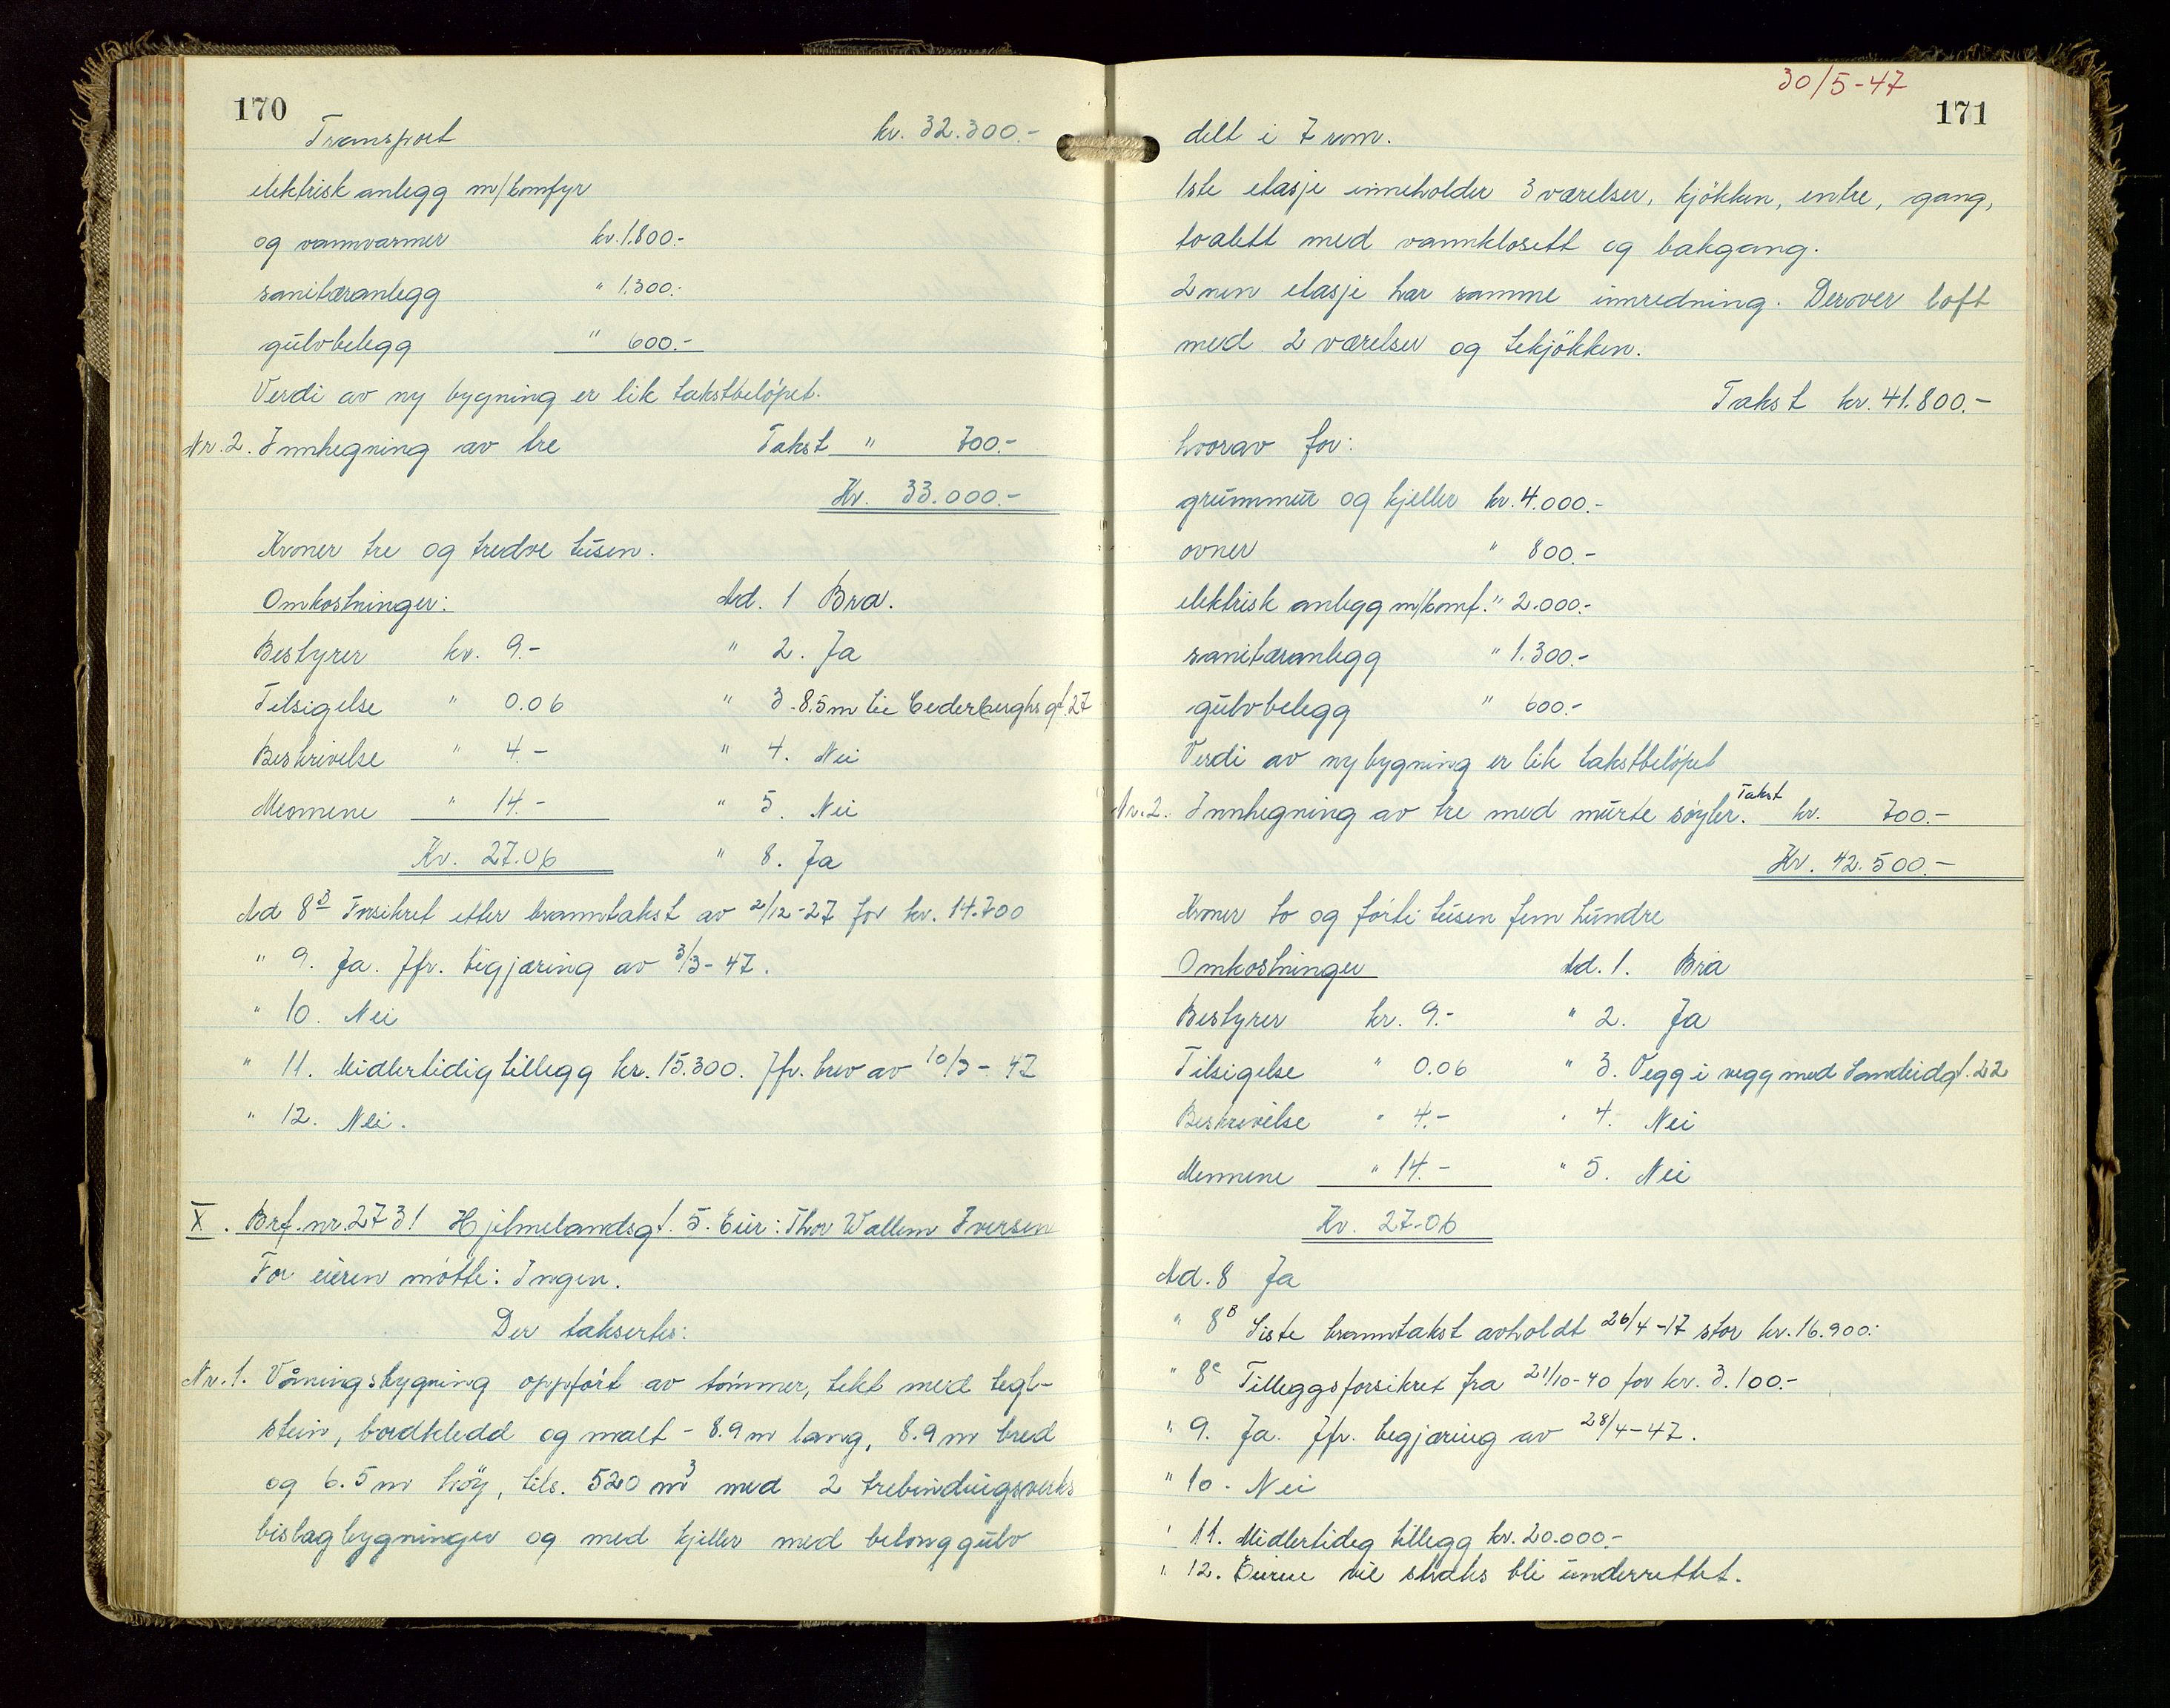 170
Transport kr. 32.300.-
elektrisk anlegg m/komfyr
og vannvarmer kr. 1.800.-
sanitæranlegg " 1.300.-
gulvbelegg " 600.-
Verdi av ny bygning er lik takstbeløpet.
Nr. 2. Innhegning av tre Takst " 700.-
Kr. 33.000.-
Kroner tre og tredve tusen.
Omkostninger: Ad. 1 Bra.
Bestyrer kr. 9.- " 2. Ja
Tilsigelse " 0.06 " 3. 8.5 m til Cederberghs gt. 27
Beskrivelse " 4.- " 4. Nei
Mennene " 14.- " 5. Nei
Kr. 27.06 " 8. Ja
Ad 8B Forsikret etter branntakst av 2/12-27 for kr. 14.700
" 9. Ja. Jfr. begjæring av 3/3-47.
" 10. Nei
" 11. Midlertidig tillegg kr. 15.300. Jfr. brev av 10/3-47
" 12. Nei.
X. Brf. nr. 2731 Hjelmelandsgt. 5. Eier: Thor Wallem Iversen
For eieren møtte: Ingen.
Der takseres:
Nr. 1. Våningsbygning oppført av tømmer, tekt med tegl-
stein, bordkledd og malt - 8.9 m lang, 8.9 m bred
og 6.5 m høy, tils. 520 m3 med 2 trebindingsverks
bislagbygninger og med kjeller med betonggulv
30/5-47
171
delt i 7 rom.
1ste etasje inneholder 3 værelser, kjøkken, entre, gang,
toalett med vannklosett og bakgang.
2nen etasje har samme innredning. Derover loft
med 2 værelser og tekjøkken.
Takst kr. 41.800.-
hvorav for:
grunnmur og kjeller kr. 4.000.-
ovner " 800.-
elektrisk anlegg m/komf. " 2.000.-
sanitæranlegg " 1.300.-
gulvbelegg " 600.-
Verdi av ny bygning er lik takstbeløpet
Nr. 2. Innhegning av tre med murte søyler. Takst kr. 700.-
Kr. 42.500.-
Kroner to og førti tusen fem hundre
Omkostninger Ad. 1. Bra
Bestyrer kr. 9.- " 2. Ja
Tilsigelse " 0.06 " 3. Vegg i vegg med Sandeidgt. 22
Beskrivelse " 4.- " 4. Nei
Mennene " 14.- " 5. Nei
Kr. 27.06
Ad. 8 Ja
" 8B Siste branntakst avholdt 26/4-17 stor kr. 16.900.-
" 8C Tilleggsforsikret fra 21/10-40 for kr. 3.100.-
" 9. Ja. Jfr. begjæring av 28/4-47.
" 10. Nei
" 11. Midlertidig tillegg kr. 20.000.-
" 12. Eieren vil straks bli underrettet.